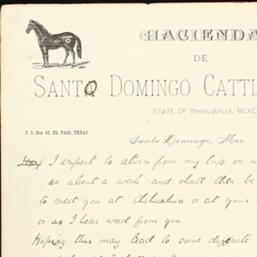 HACIENDA
DE
SANTO DOMINGO CATTL
STATE OF CHIHUAHUA, MEXIC
P. O. Box 95, EL PASO, TEXAS.
Santo Domingo, Mex
I expect to return from my trip on
in about a week and shall then be
to meet you at Chihuahua or at your
or as I hear word from you.
Hoping this may lead to some definite